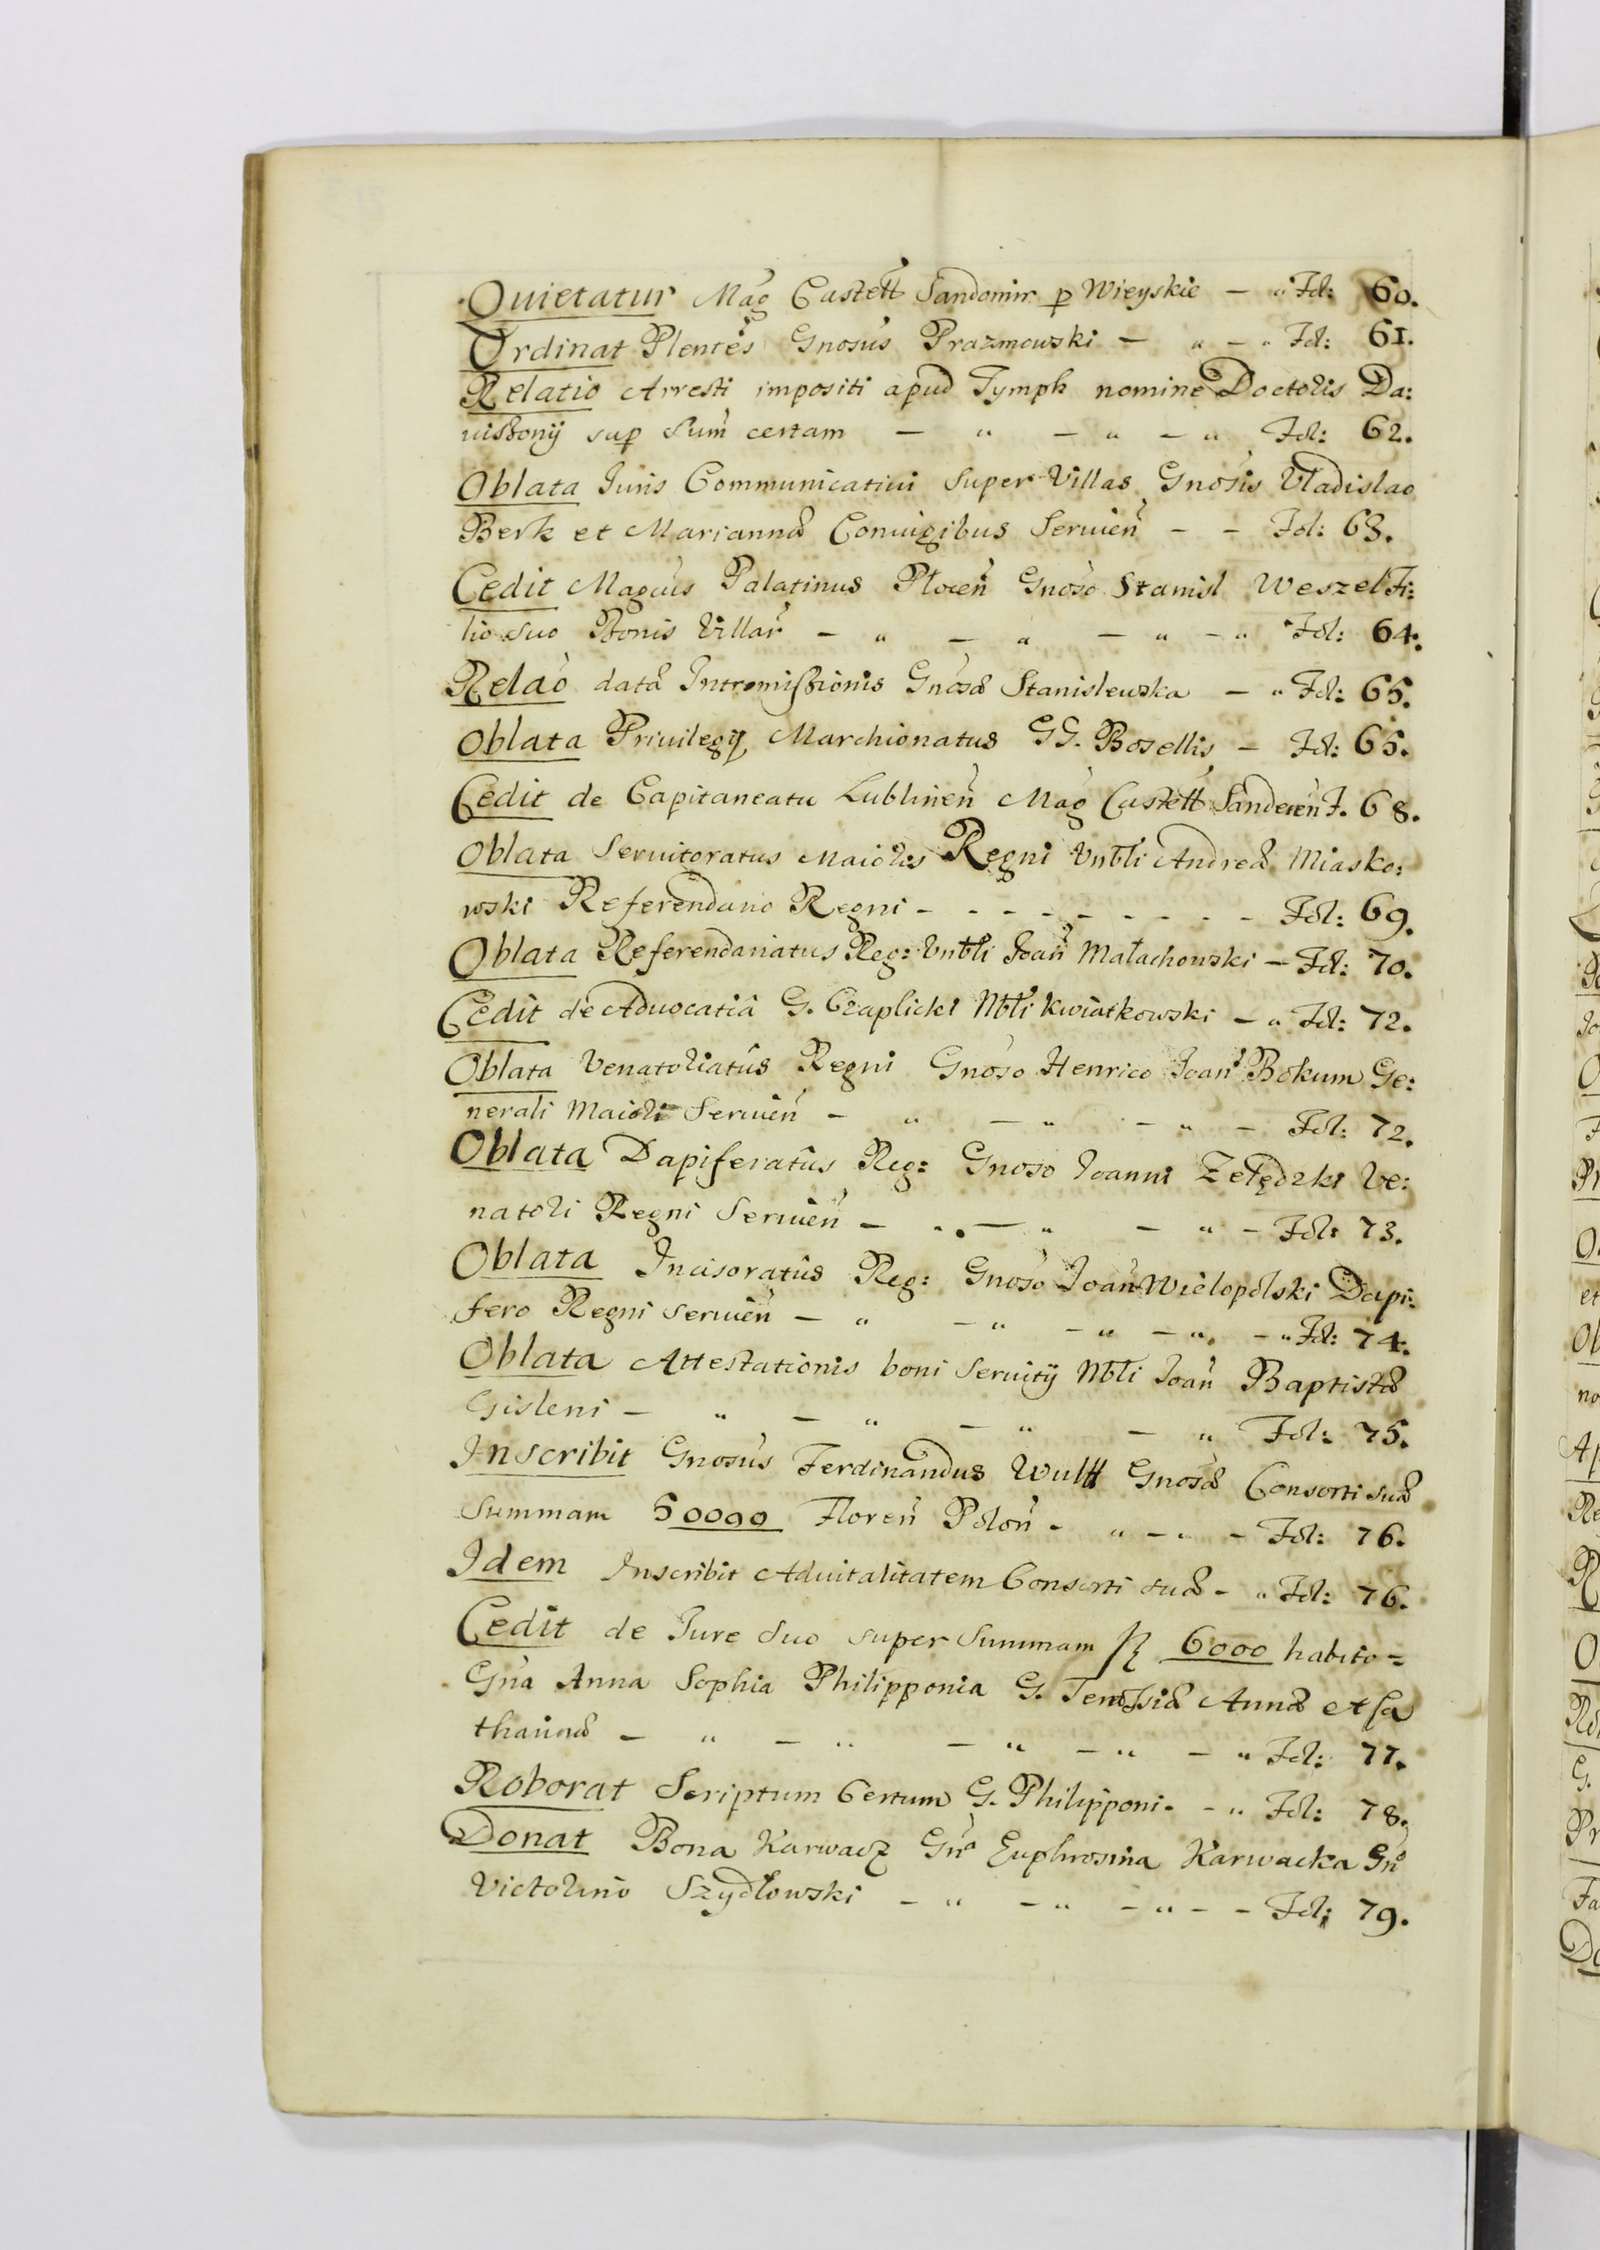 Quietatur Mag Castell Sandomir p Wieyskie – „ Fol: 60.
Ordinat Plentes Gnosus Prazmowski – „ – „ Fol: 61.
Relatio Arresti impositi apud Tymph nomine Doctoris Da:
uissonij sup Sum certam – „ – „ – „ Fol: 62.
Oblata Juris Communicatiui super Villas Gnosis Vladislao
Berk et Mariannæ Coniugibus Seruien – – Fol: 63.
Cedit Magcus Palatinus Plocen Gnoso Stanisl Weszel Fi:
lio suo Bonis Villar – „ – „ – „ – „ Fol: 64.
Relao datæ Intromissionis Gnosæ Stanislewska – „ Fol: 65.
Oblata Priuilegij Marchionatus GG. Bosellis – Fol: 65.
Cedit de Capitaneatu Lublinen Mag Castell Sandecen F. 68.
Oblata Seruitoratus Maioris Regni Vrbli Andreæ Miasko:
wski Referendario Regni – – – – – – – – – Fol: 69.
Oblata Referendariatus Reg: Vrbli Joan Małachowski – Fol: 70.
Cedit de Aduocatiâ G. Czaplicki Nbli Kwiatkowski – „ Fol: 72.
Oblata Venatoriatûs Regni Gnoso Henrico Joan Bokum Ge:
nerali Maiori Seruien – „ – „ – „ – Fol: 72.
Oblata Dapiferatûs Reg: Gnoso Joanni Zelędzki Ve:
natori Regni Seruien – „ – „ – „ – Fol: 73.
Oblata Incisoratûs Reg: Gnoso Joan Wielopolski Dapi:
fero Regni Seruien – „ – „ – „ – „ – „ Fol: 74.
Oblata Attestationis boni Seruitij Nbli Joan Baptistæ
Gisleni – „ – „ – „ – „ Fol: 75.
Inscribit Gnosus Ferdinandus Wulff Gnosæ Consorti suæ
Summam 50000 Floren Polon – „ – „ – Fol: 76.
Idem Inscribit Aduitalitatem Consorti suæ – „ Fol: 76.
Cedit de Jure suo super Summam 6000 habito =
Gna Anna Sophia Philipponia G. Annæ et Ca
tharinæ – „ – „ – „ – „ – „ Fol: 77.
Roborat Scriptum Certum G. Philipponi. – „ Fol: 78.
Donat Bona Karwacz Gn Euphrosina Karwacka Gn
Victorino Szydłowski – „ – „ – „ – – Fol: 79.